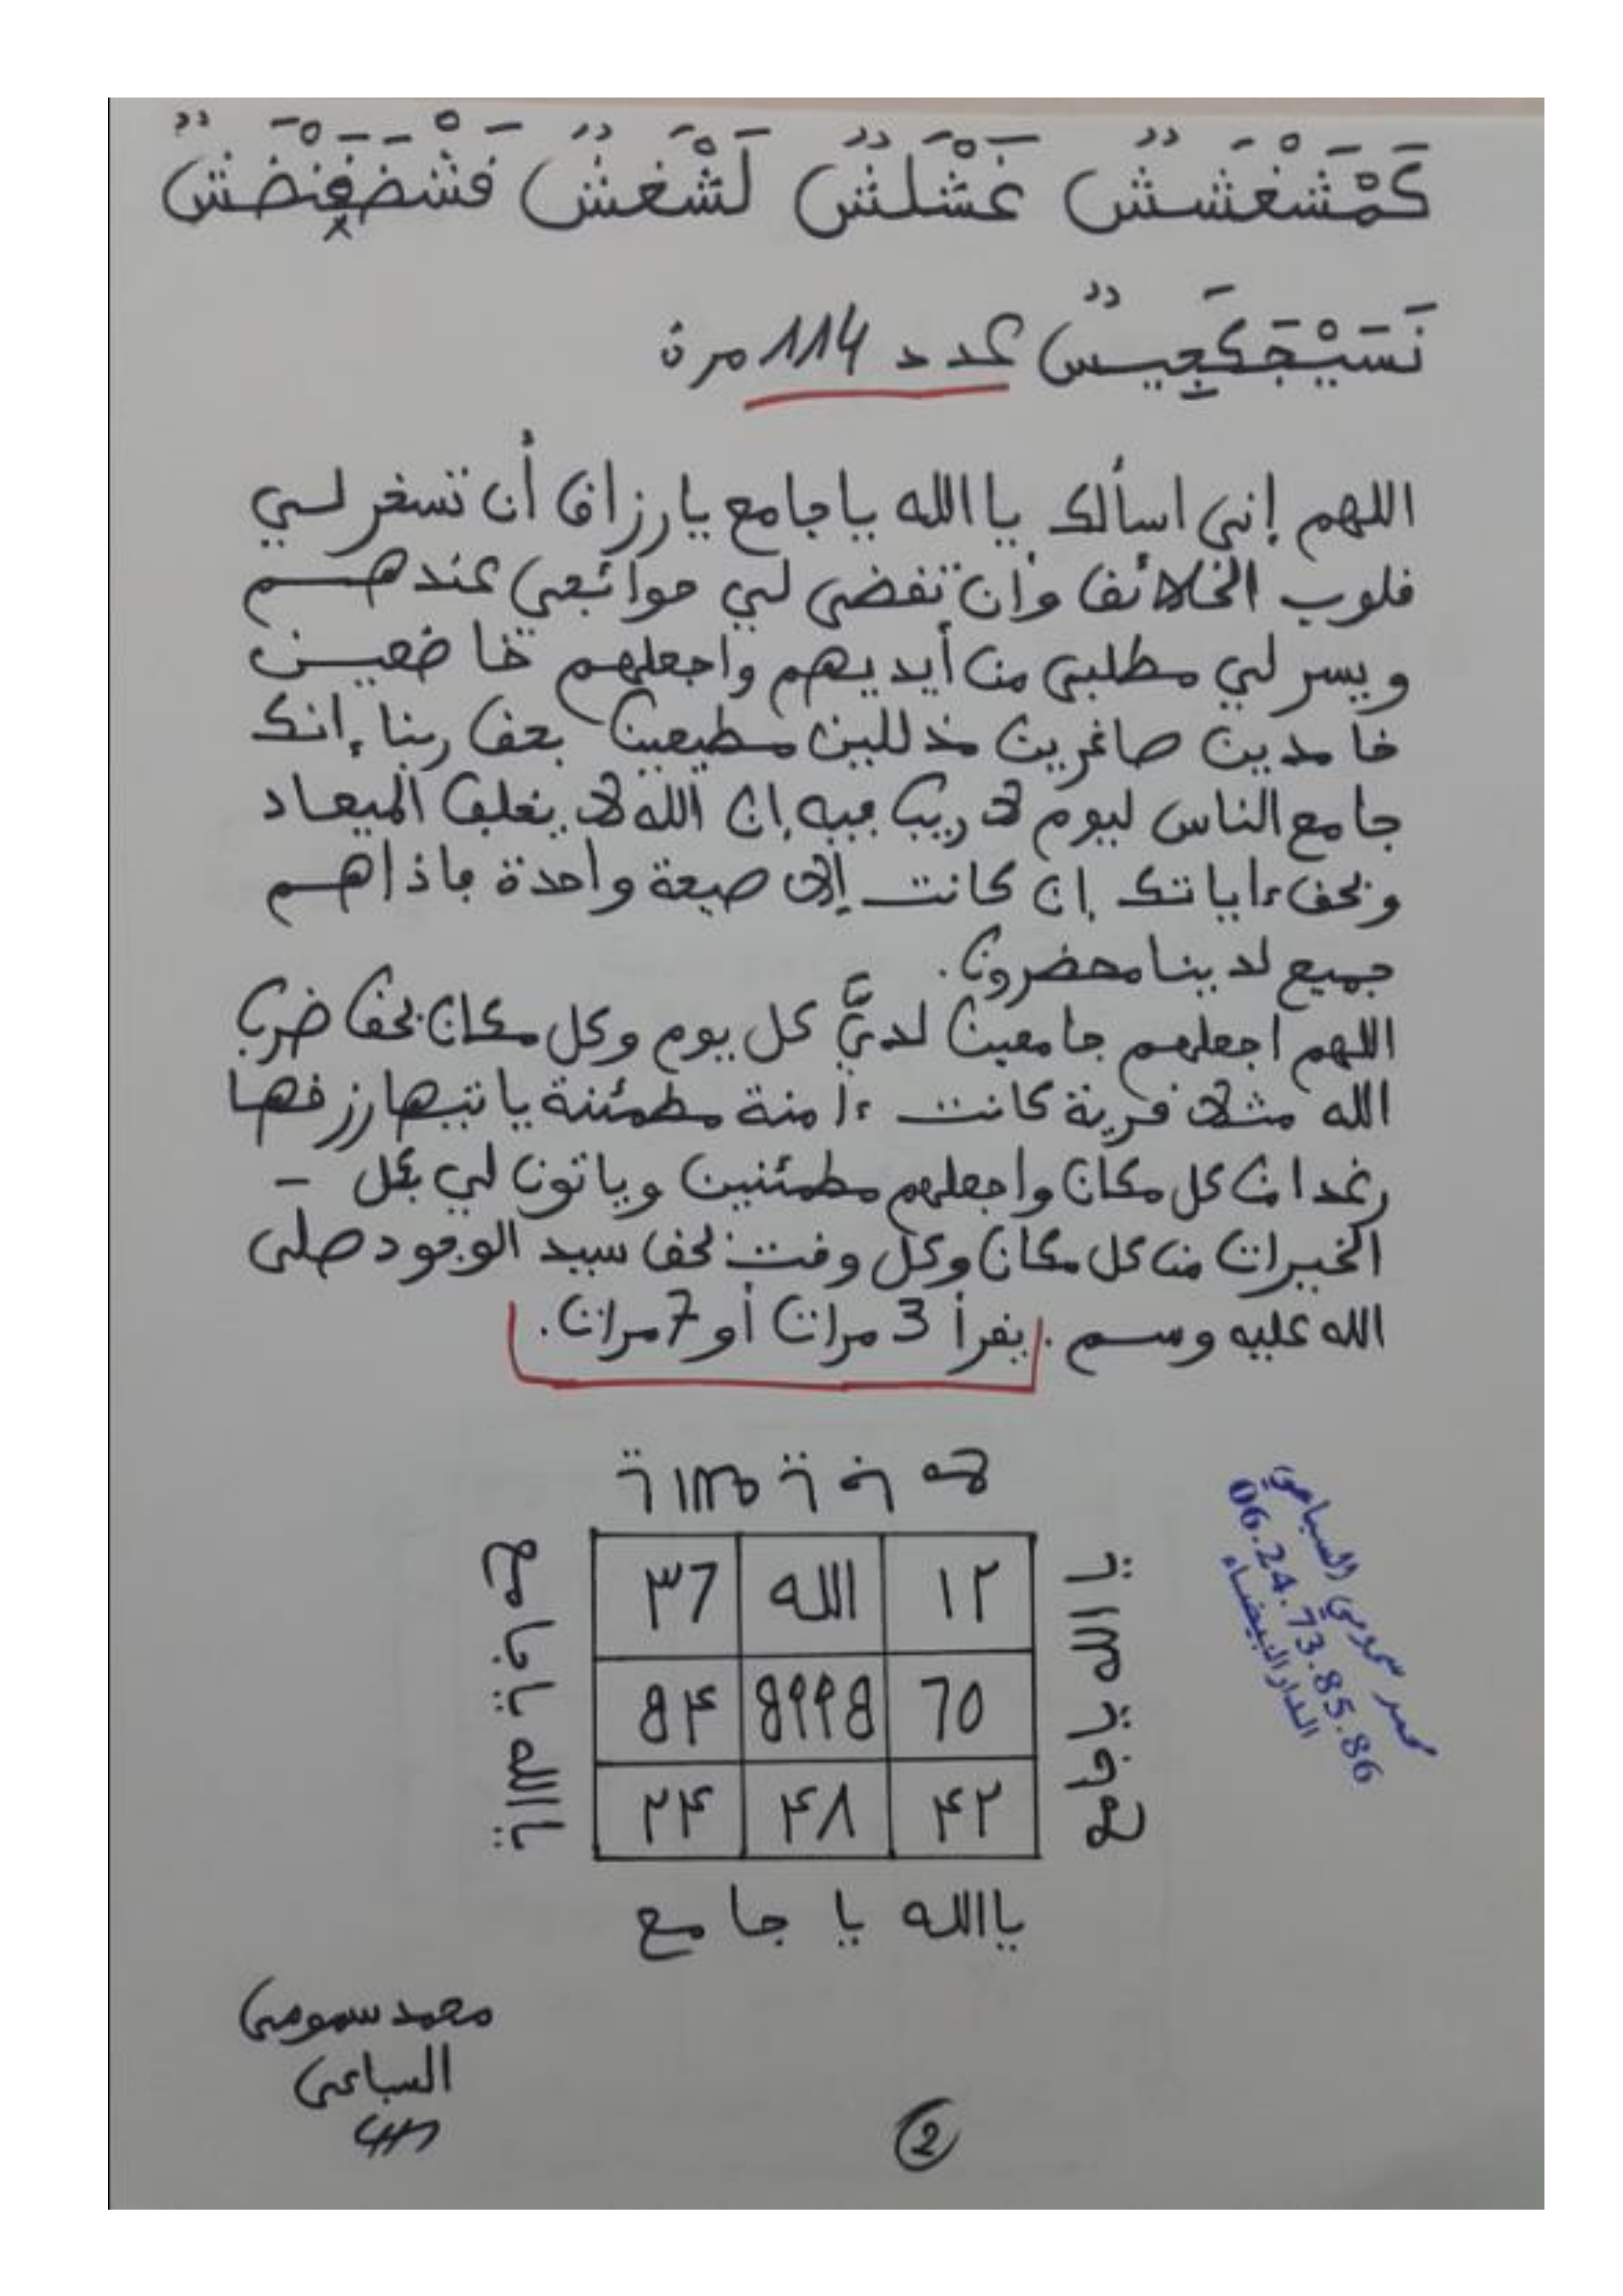 كَمْشَغْشَشٌ غَشْلَشٌ لَشْغَشٌ
نَسَيْجَكَعِيسٌ عدد 114 مرة
اللهم إني اسألك ياالله ياجامع يارزاق أن تسخر لي
قلوب الخلائق وأن تقضي لي حوائجي عندهم
ويسر لي مطلبي من أيديهم واجعلهم خاضعين
خامدين صاغرين مذللين مطيعين بحق ربنا إنك
جامع الناس ليوم لا ريب فيه إن الله لا يخلف الميعاد
وبحق ءاياتك إن كانت إلا صيحة واحدة فاذا هم
جميع لدينا محضرون.
اللهم اجعلهم جامعين لديَّ كل يوم وكل مكان بحق ضرب
الله مثلا قرية كانت ءامنة مطمئنة ياتيها رزقها
رغدا من كل مكان واجعلهم مطمئنين وياتون لي بكل -
الخيرات من كل مكان وكل وقت بحق سيد الوجود صلى
الله عليه وسم. يقرأ 3 مرات أو 7 مرات.
١٢ الله ٣7
7٥ 8٩٩8 8۴
۴٢ ۴٨ ٢۴
ياالله يا جامع
ياالله يا جامع
محمد سمومي السباعي
06.24.73.85.86
الدار البيضاء
محمد سمومي
السباعي
2